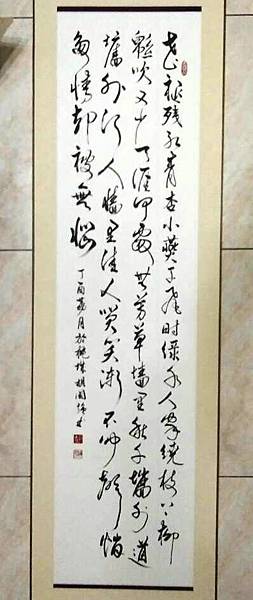 花褪残红青杏小燕子飞时绿水人家绕枝上柳
绵吹又少天涯何处無芳草墙里秋千墙外道
墙外行人墙里佳人笑笑渐不闻声悄
多情却被無惱
丁酉夏月於